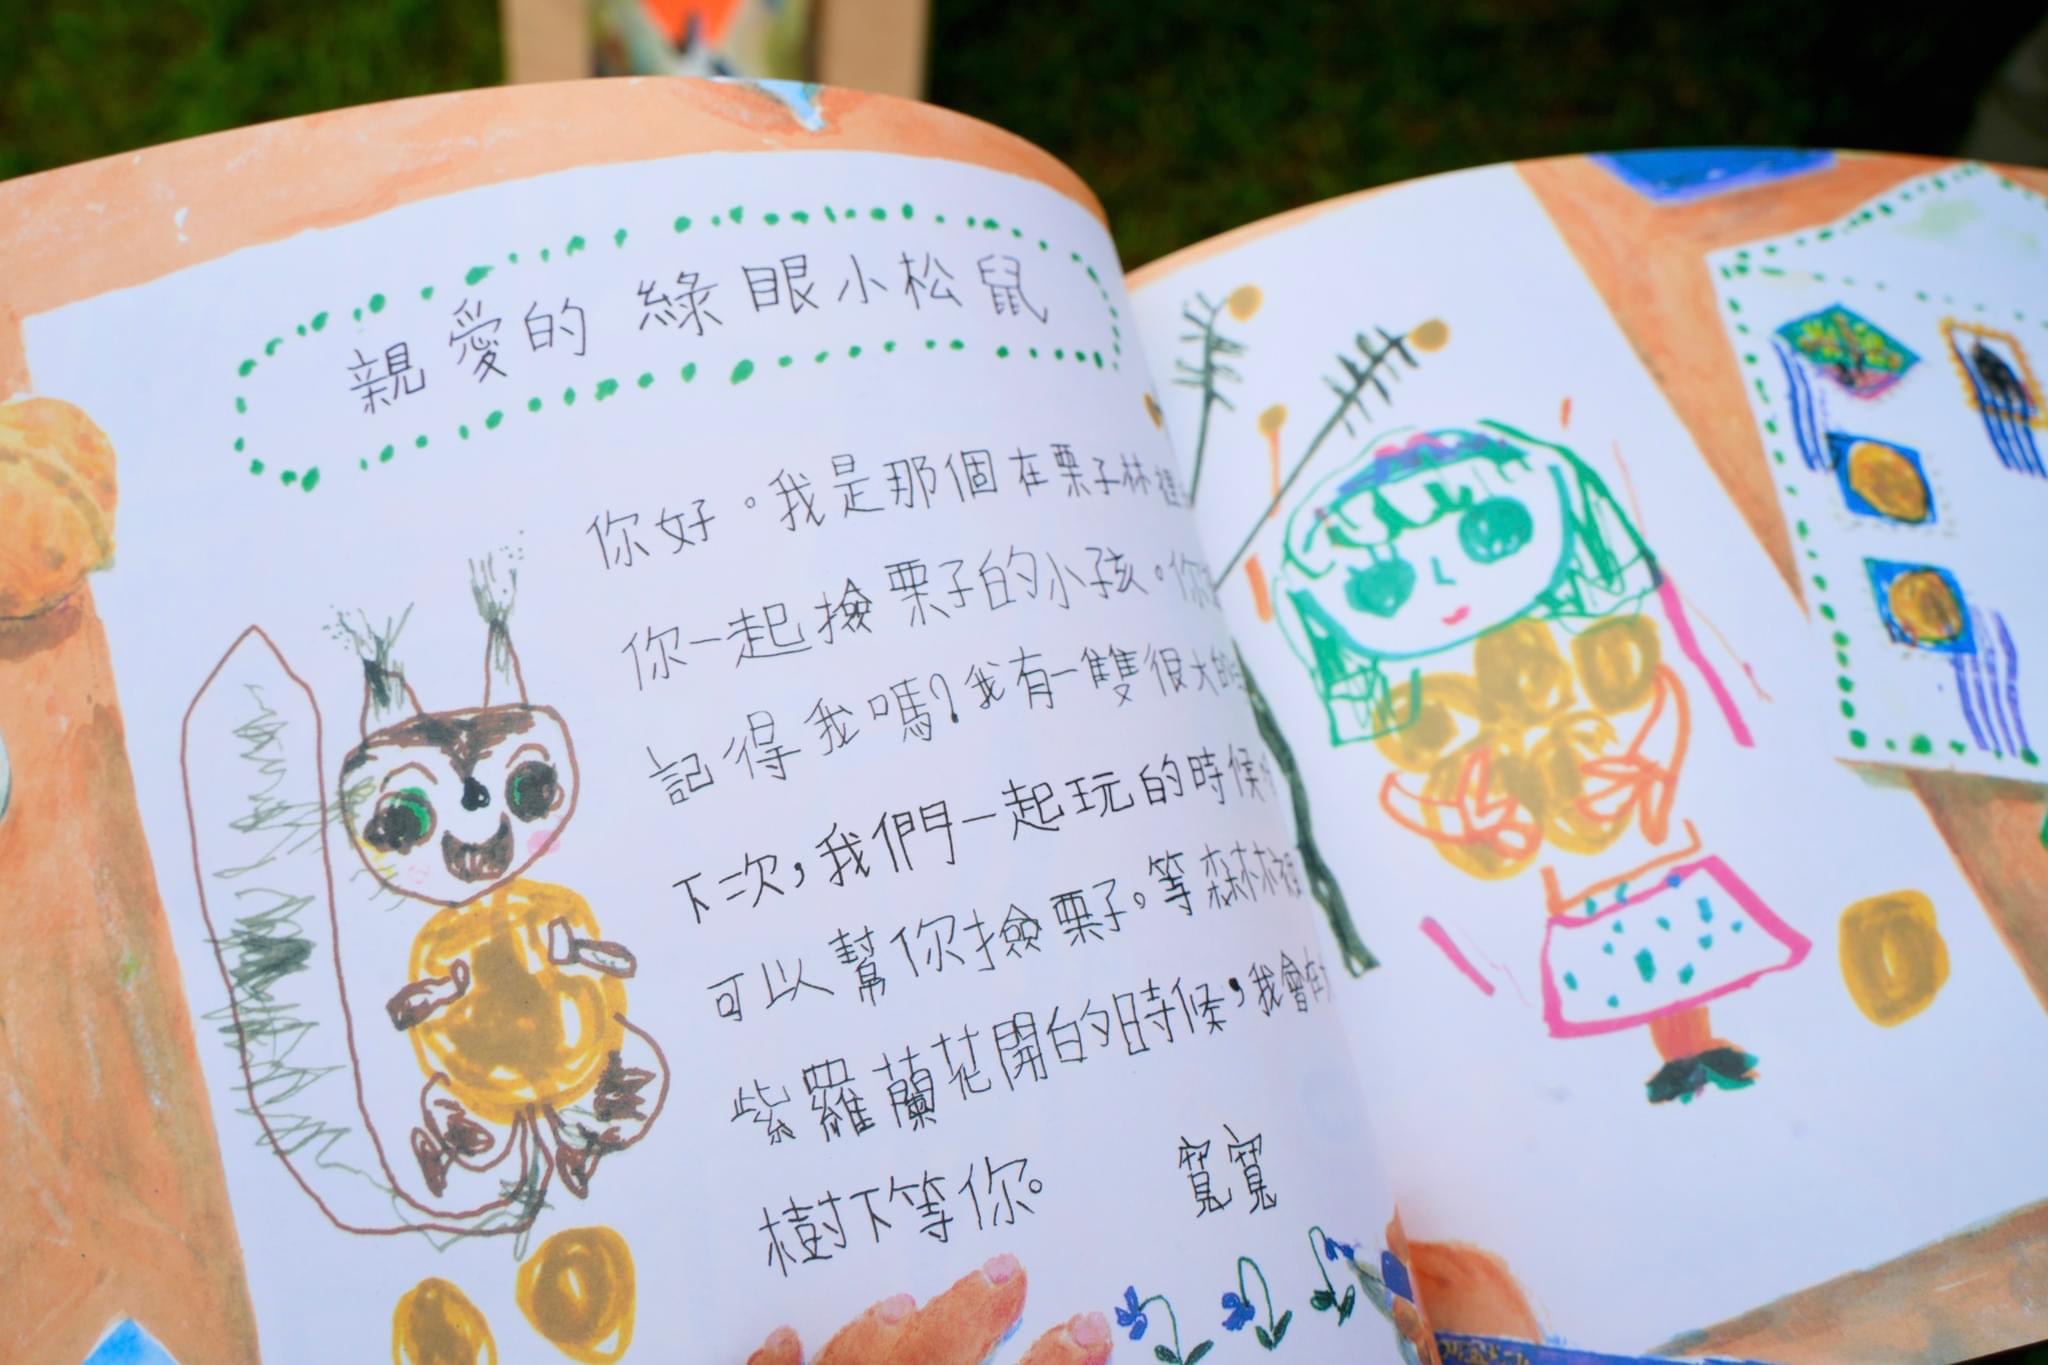 親愛的 綠眼小松鼠
你好。我是那個在栗子林裡
你一起撿栗子的小孩。你
記得我嗎？我有一雙很大的
下次，我們一起玩的時候
可以幫你撿栗子。等森林裡
紫羅蘭花開的時候，我會在
樹下等你。
寬寬